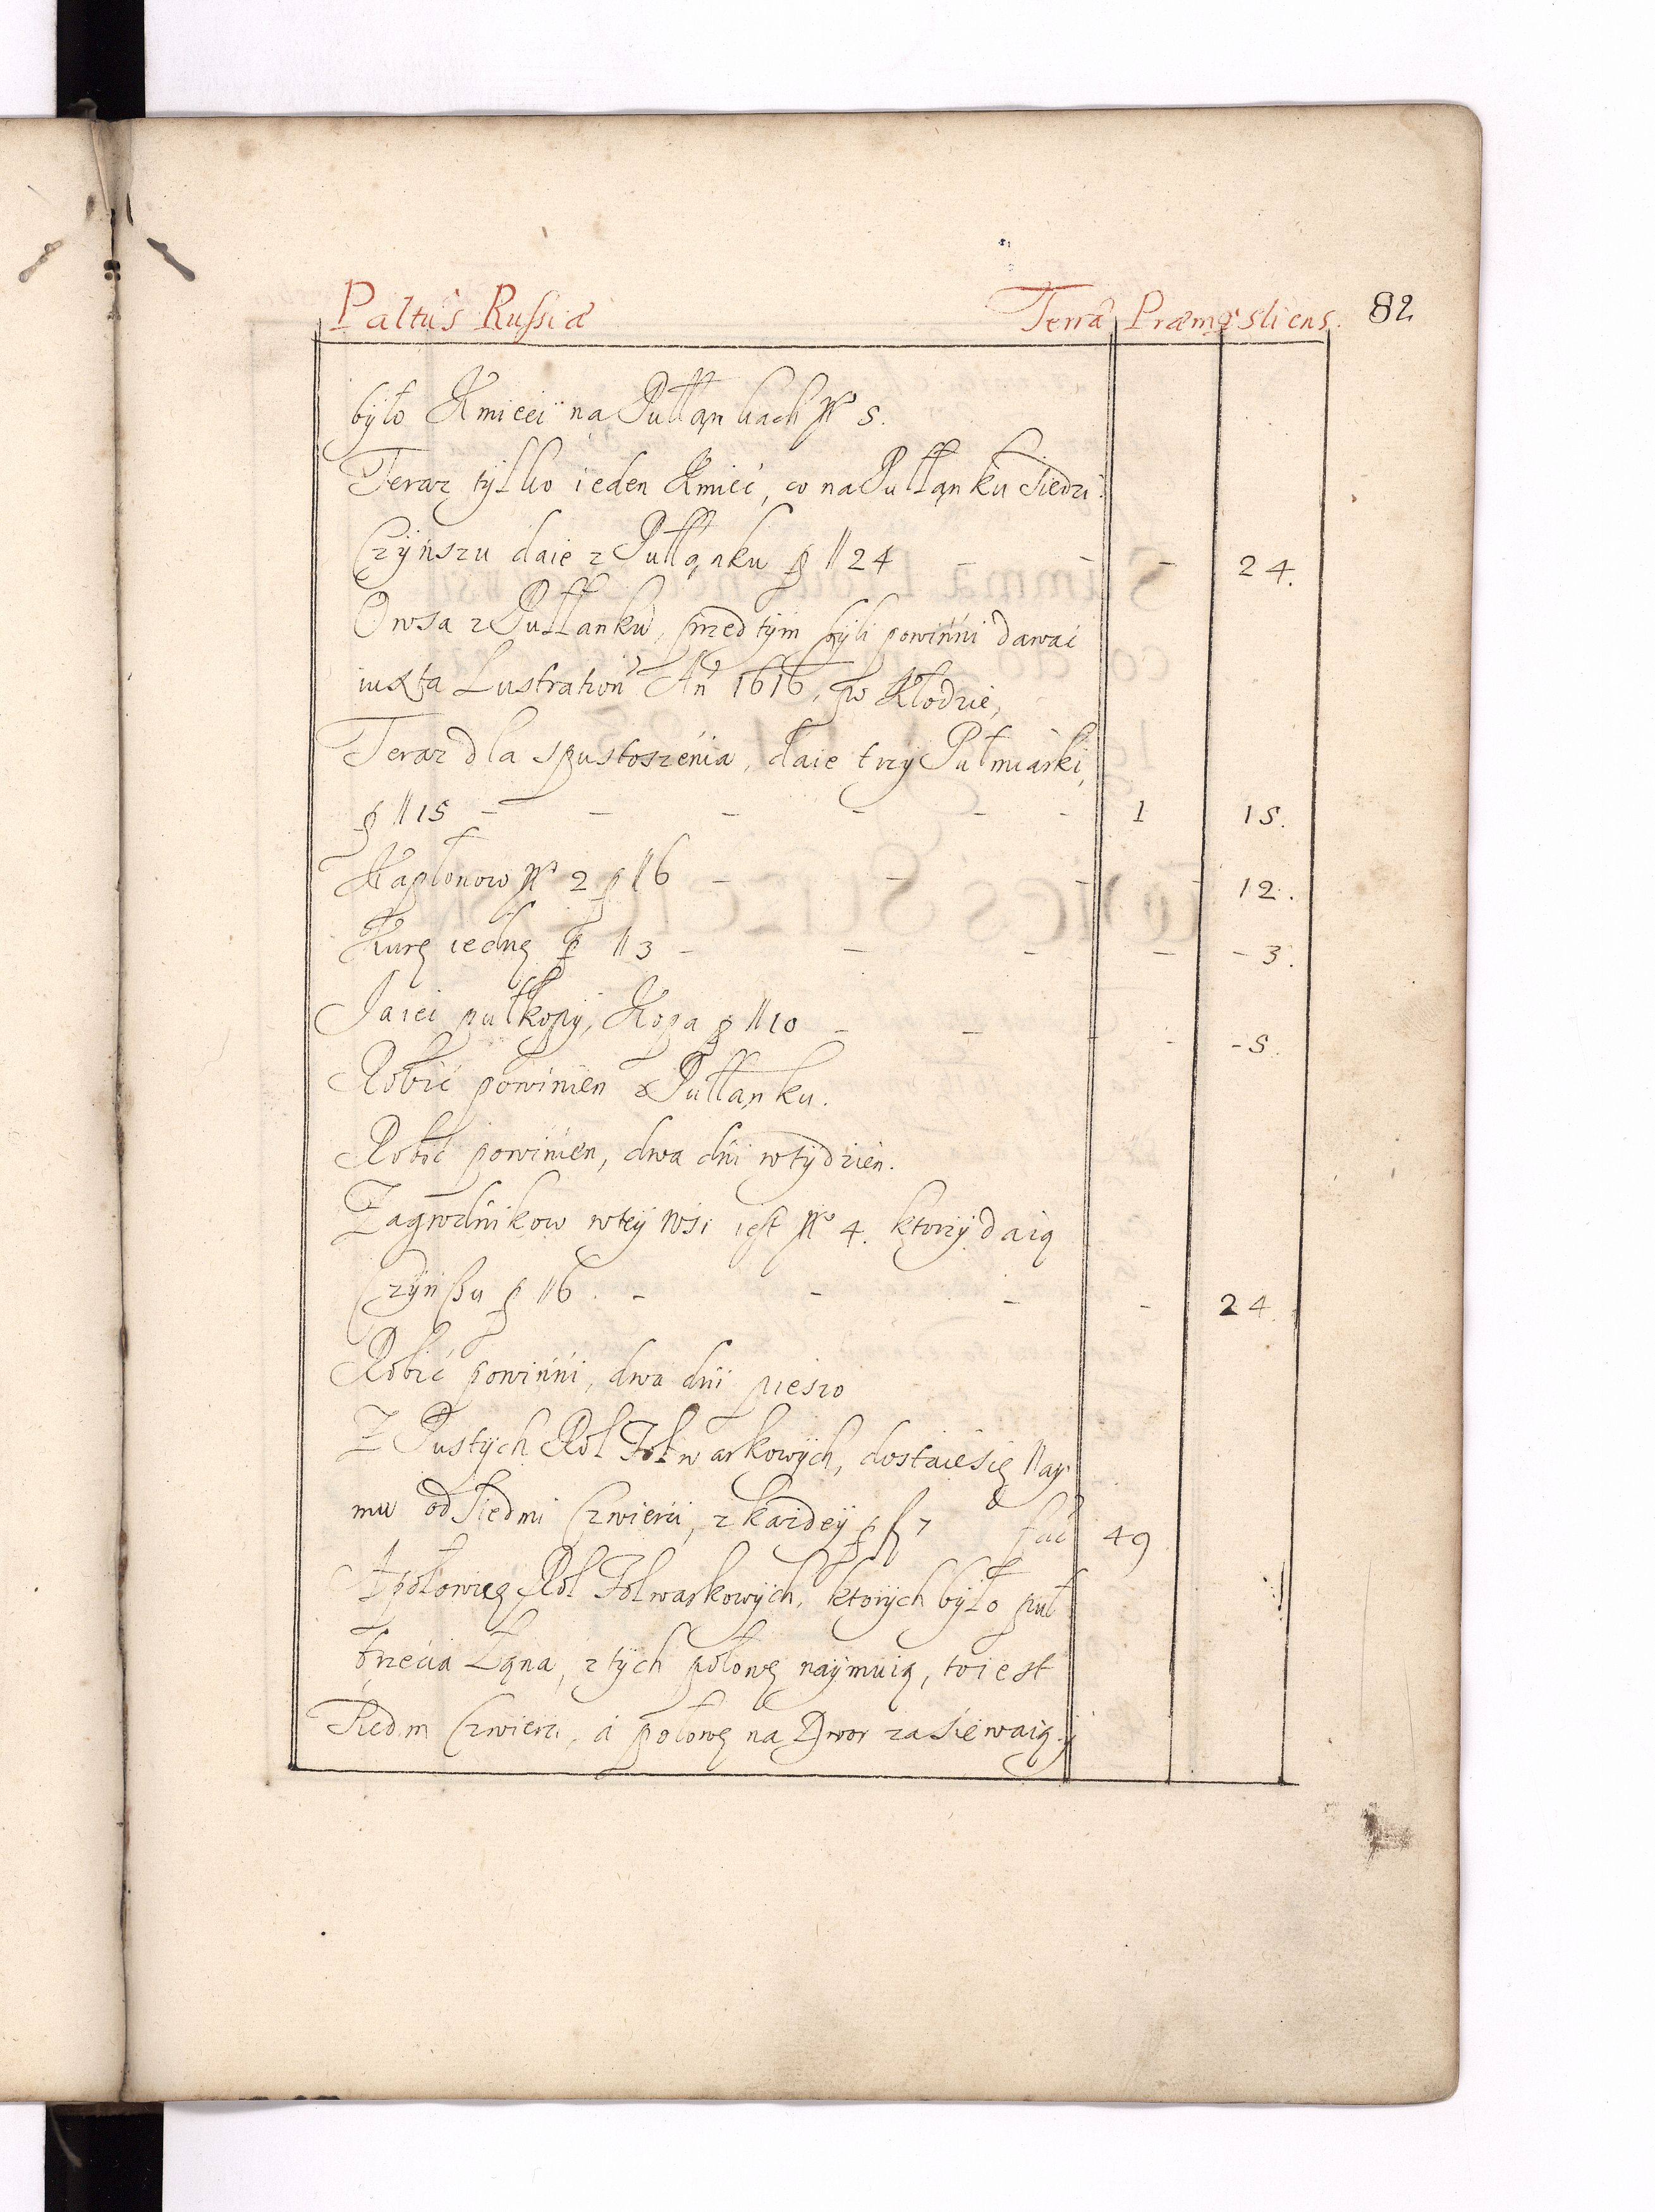 Paltus Russiæ Terra Præmysliens. 82
było Kmieci na Pułłankach No 5.
Teraz tylko ieden Kmieć, co na Pułłanku siedzi.
Czÿnszu daie z Pułłanku p // 24 - - - 24.
Owsa z Pułłanku, przed tÿm bÿli powinni dawać
iuxta Lustration An 1616, po Kłodzie,
Teraz dla spustoszenia, daie trzÿ Pułmiarki,
p // 15 - - - - - - 1 15.
Kapłonow No 2 p // 6 - - - - 12.
Kurę iednę p // 3 - - - - - 3.
Jaiec pułkopÿ, Kopa p // 10 - - - - - 5.
Robić powinien z Pułłanku.
Robić powinien, dwa dni w tÿdzien.
Zagrodnikow w teÿ Wsi iest No 4. ktorzÿ daią
Czÿnszu p // 6. - - - - 24.
Robić powinni, dwa dni pieszo
Z Pustÿch Rol Folwarkowÿch, dostaie się Naÿ
mu od Siedmi Czwierci, z każdeÿ p f 7 fac 49
A połowicę Rol Folwarkowÿch, ktorÿch bÿło puł
trzecia Łana, z tÿch połowę naÿmuią, to iest
Siedm Czwierci, a połowę na Dwor zasiewaią.